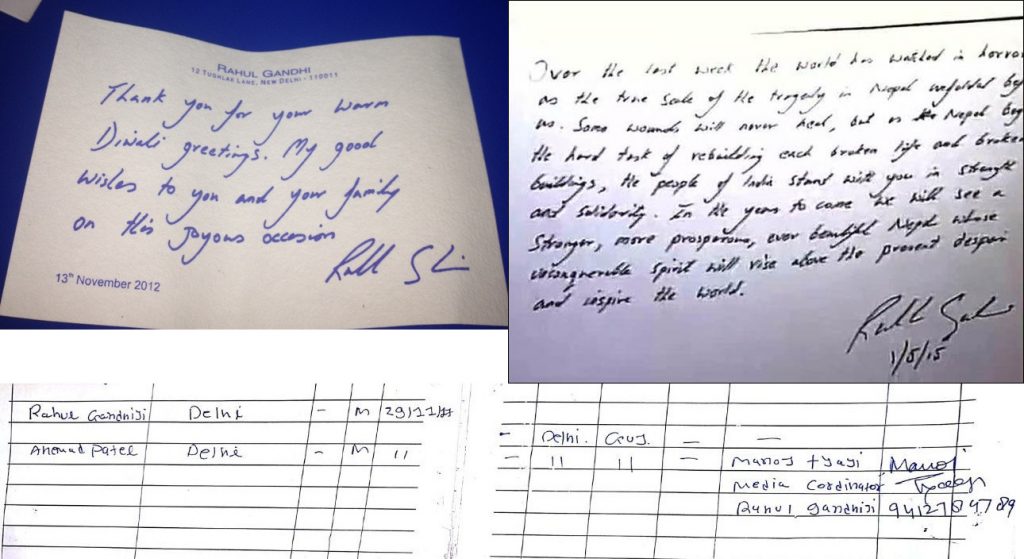 RAHUL GANDHI
12 TUGHLAK LANE, NEW DELHI - 110011
Thank you for your warm
Diwali greetings. My good
wishes to you and your family
on this joyous occasion
13th November 2012
Over the last week the world has watched in horror
as the true scale of the tragedy in Nepal unfolded bef
us. Some wounds will never heal, but as the Nepal beg
the hard task of rebuilding each broken life and broken
buildings, the people of India stand with you in strength
and solidarity. In the years to come we will see a
stronger, more prosperous, ever beautiful Nepal whose
unconquerable spirit will rise above the present despair
and inspire the world.
1/5/15
Rahul Gandhiji Delhi - M 29/11/17
Ahemad Patel Delhi - M 11
- Delhi. Guj. - -
- 11 11 - Manoj tyagi Manoj
Media Cordinator Tyagi
Rahul gandhiji 9412704789